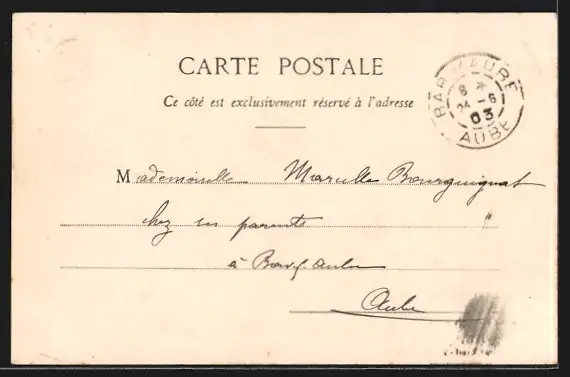 CARTE POSTALE
Ce côté est exclusivement réservé à l'adresse
BAR-S-AUBE
6 *
24 - 6
03
AUBE
Mademoiselle Marcelle Bourguignat
chez ses parents
à Bar s/ Aube
Aube